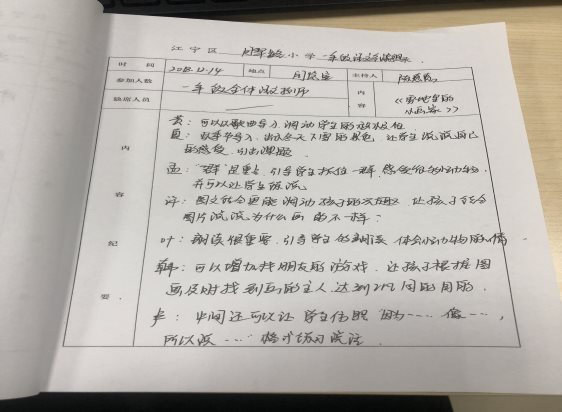 江宁区 小学一年级语文
时间 2018.12.14 地点 主持人
参加人数 一年级全体语文教师 内容 《雪地里的小画家》
缺席人员
内容纪要
袁：可以以歌曲导入 调动学生的积极性
夏：联系导入，出示冬天下雪的景色，让学生说说自己
的感受，引出课题。
孟：“群”是重点，引导学生抓住一群，感受
并可以让学生练说
许：图文结合更能调动孩子的 让孩子结合
图片说说为什么画的不一样。
叶：朗读很重要，引导学生的朗读 体会小动物的心情
韩：可以增加找朋友的游戏，让孩子根据图
画及时找到画的主人 达到 的目的。
中间还可以让学生仿照 因为…… 像……，
所以 …… 格式练习说话